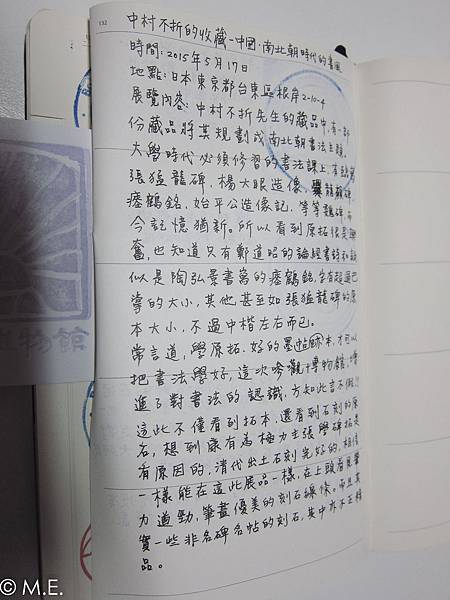 132
中村不折的收藏-中國·南北朝時代的書風
時間:2015年5月17日
地點:日本東京都台東區根岸2-10-4
展覽內容:中村不折先生的藏品中,有一部
份藏品將其規劃成南北朝書法主題。
大學時代必須修習的書法課上,
張猛龍碑,楊大眼造像,爨龍顏碑,
瘞鶴銘,始平公造像記,等等,
今記憶猶新。所以看到原拓很是興
奮,也知道只有鄭道昭的論經書詩和
似是陶弘景書寫的瘞鶴銘,字有超過巴
掌的大小,其他甚至如張猛龍碑的原
本大小,不過中楷左右而已。
常言道,學原拓、好的墨帖本,才可以
把書法學好,這次吟觀博物館,增
進了對書法的認識,方知此言不假!!
這些不僅看到拓本,還看到石刻的原
名,想到康有為極力主張學碑拓是
有原因的,清代出土石刻完好的,相信
一樣能在這些展品一樣,在上頭看見筆
力遒勁,筆畫優美的刻石線條。而且其
實一些非名碑名帖的刻石,其中亦不乏精
品。
博物館
© M.E.